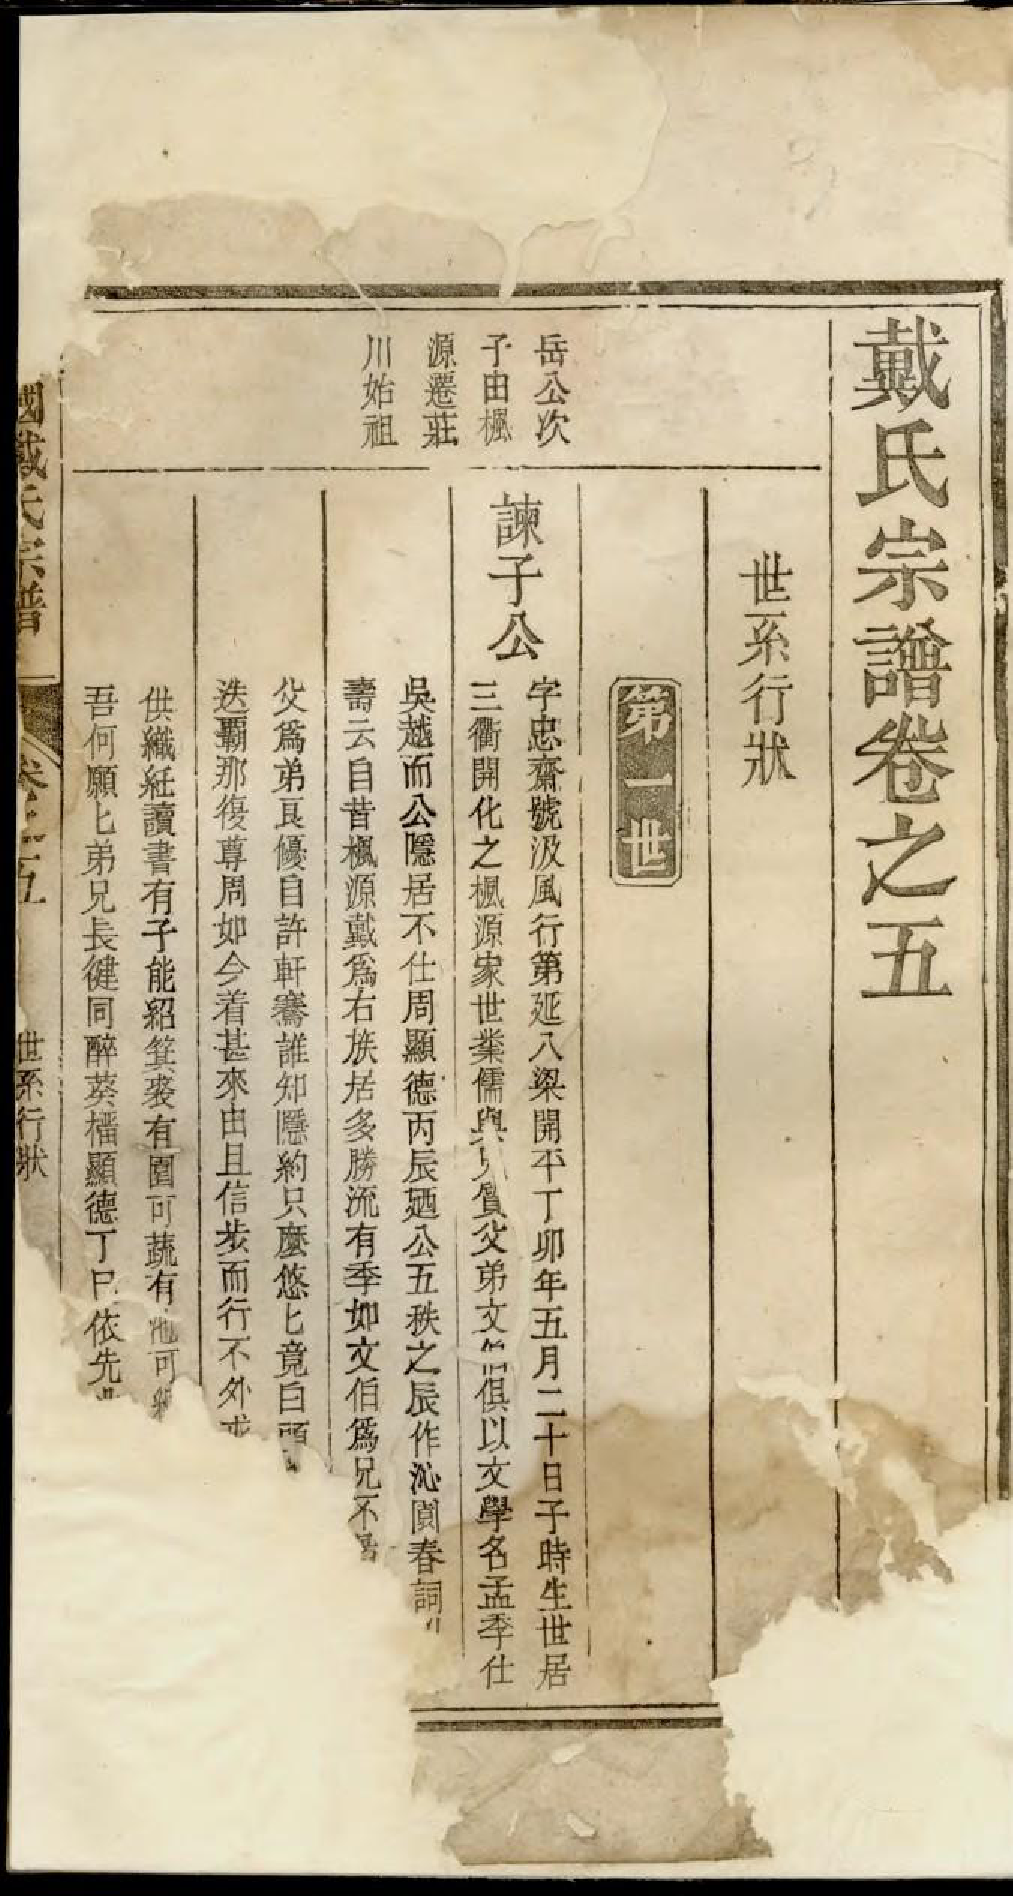 戴氏宗譜卷之五
世系行狀
第一世
岳公次
子由楓
源遷莊
川始祖
諫子公
字忠齋號汲風行第延八梁開平丁卯年五月二十日子時生世居
三衢開化之楓源家世業儒與兄質父弟文俱以文學名孟季仕
吳越而公隱居不仕周顯德丙辰廼公五秩之辰作沁園春詞
壽云自昔楓源戴爲右族居多勝流有季如文伯爲兄不
父爲弟良優自許軒騫誰知隱約只麼悠匕竟白頭
迭覇那復尊周如今着甚來由且信步而行不外求
供織紝讀書有子能紹箕裘有園可蔬有池可
吾何願匕弟兄長健同醉葵榴顯德丁巳依先
國戴氏宗譜
卷之五
世系行狀